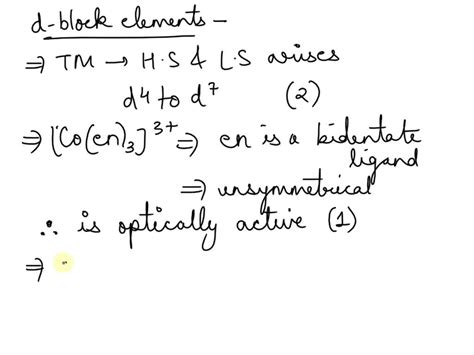 d-block elements -
⇒ TM → H.S & L.S arises
d4 to d7 (2)
⇒ [Co(en)3]3+ ⇒ en is a bidentate
ligand
⇒ unsymmetrical
∴ is optically active (1)
⇒